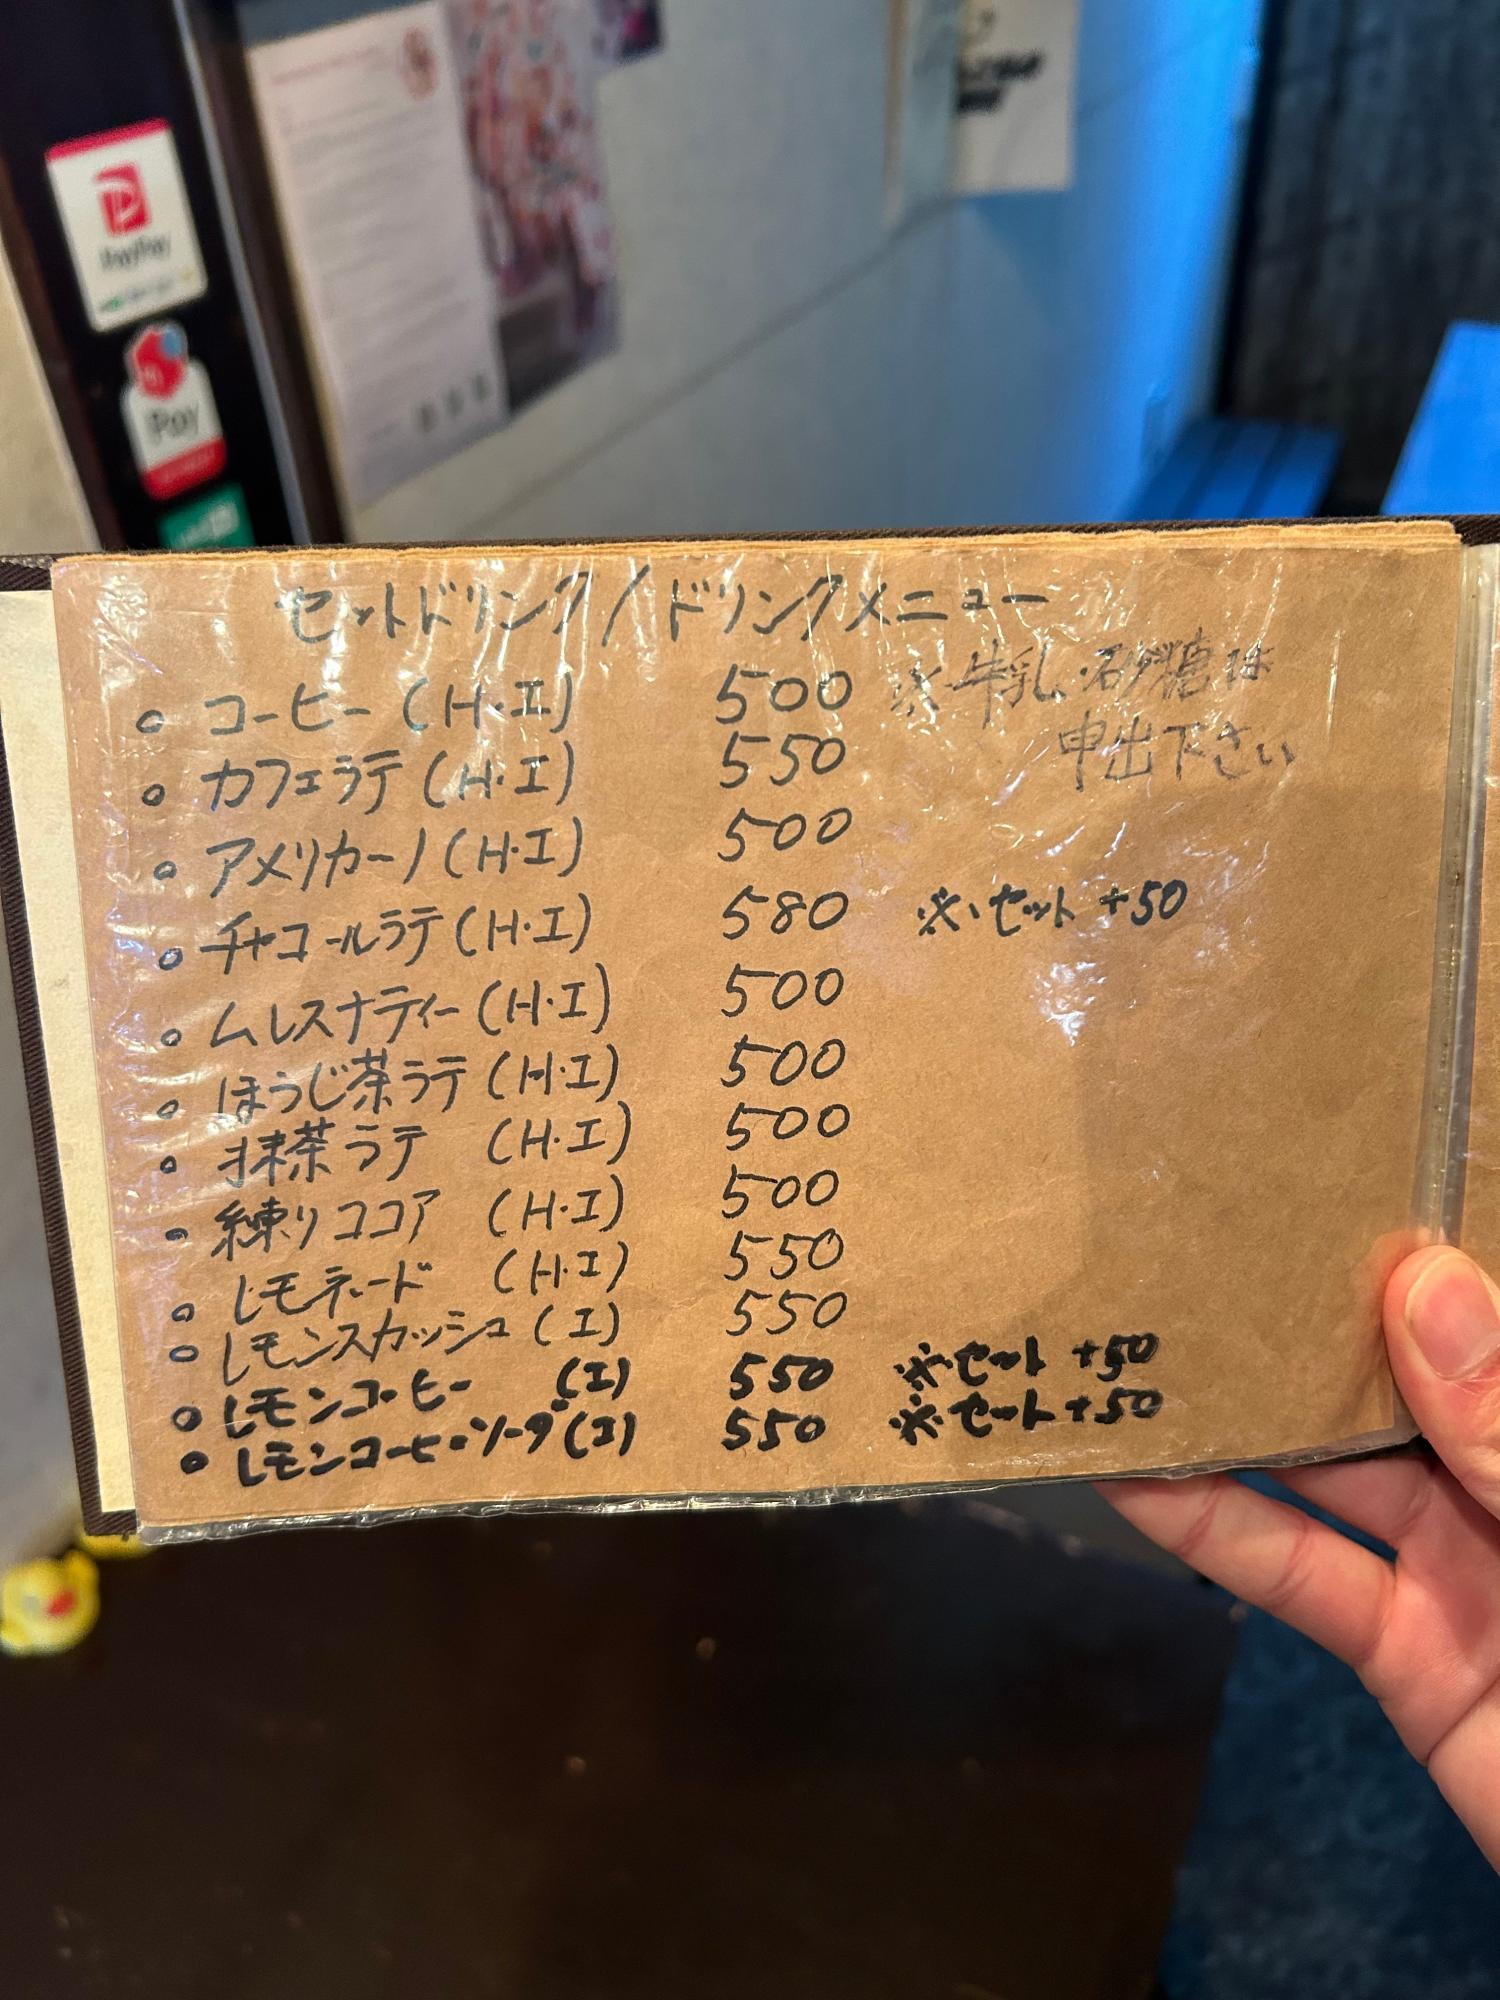 PayPay
Pay
セットドリンク/ドリンクメニュー
※牛乳・砂糖は
申出下さい
○ コーヒー (H・I) 500
○ カフェラテ (H・I) 550
○ アメリカーノ (H・I) 500
○ チャコールラテ (H・I) 580 ※セット +50
○ ムレスナティー (H・I) 500
○ ほうじ茶ラテ (H・I) 500
○ 抹茶ラテ (H・I) 500
○ 練りココア (H・I) 500
○ レモネード (H・I) 550
○ レモンスカッシュ (I) 550
○ レモンコーヒー (I) 550 ※セット +50
○ レモンコーヒーソーダ (I) 550 ※セット +50